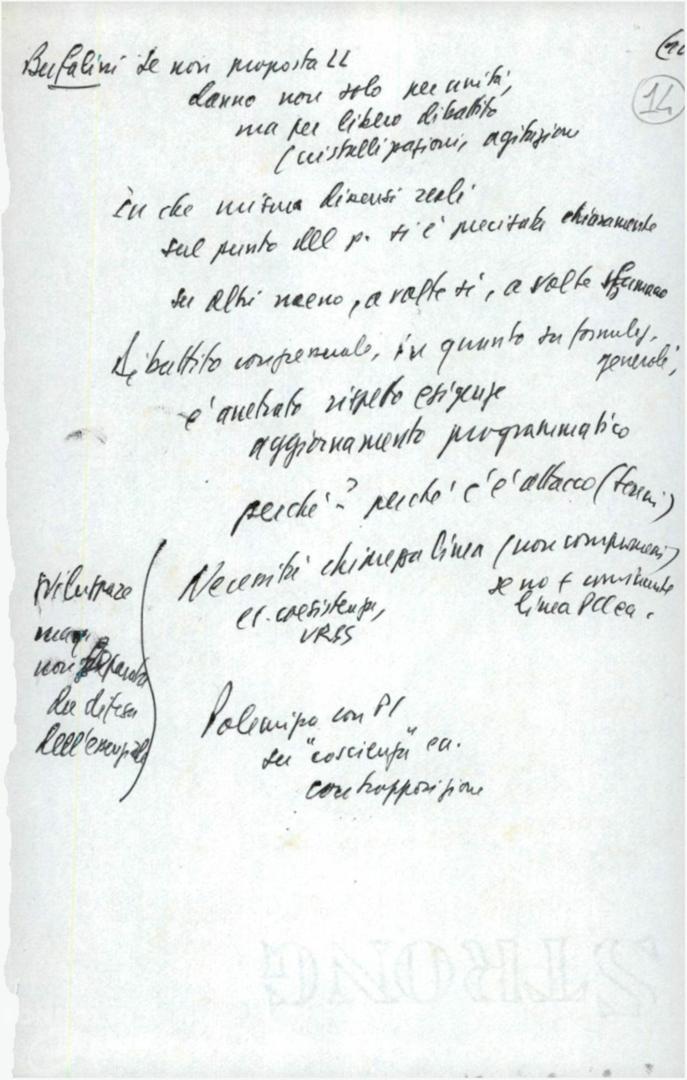 Bufalini se non proposta LL
danno non solo per unità,
ma per libero dibattito
(cristallizzazioni, agitazione
14
in che misura dissensi reali
sul punto del p. si è precisata chiaramente
su altri meno, a volte sì, a volte sfumano
Dibattito congressuale, in quanto su formulaz.
generali,
è arretrato rispetto esigenze
aggiornamento programmatico
perché? perché c'è attacco (
)
Necessità chiarezza linea (non compromessi)
se no + convincente
linea PCC ea.
es. coesistenza,
URSS
sviluppare
ma
non separato
da difesa
dell'
Polemica con PC
su "coscienza" ea.
contrapposizione
STRONG